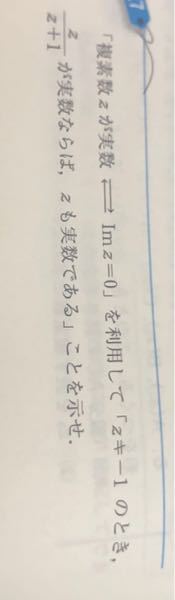 7
「複素数 z が実数 ⇄ Im z=0」を利用して「z≠−1 のとき,
z/z+1 が実数ならば, z も実数である」ことを示せ.